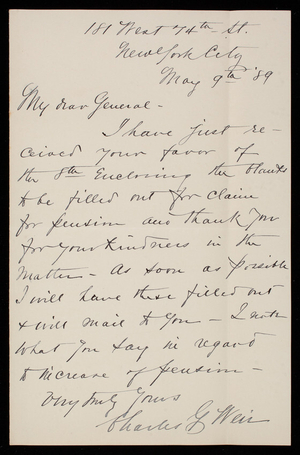 181 West 74th St.
New York City
May 9th '89
My dear General -
I have just re-
ceived your favor of
the 8th Enclosing the blanks
to be filled out for claim
for pension and thank you
for your kindness in the
matter - As soon as possible
I will have these filled out
& will mail to you - I note
what you say in regard
to increase of pension -
Very truly Yours
Charles G Weir